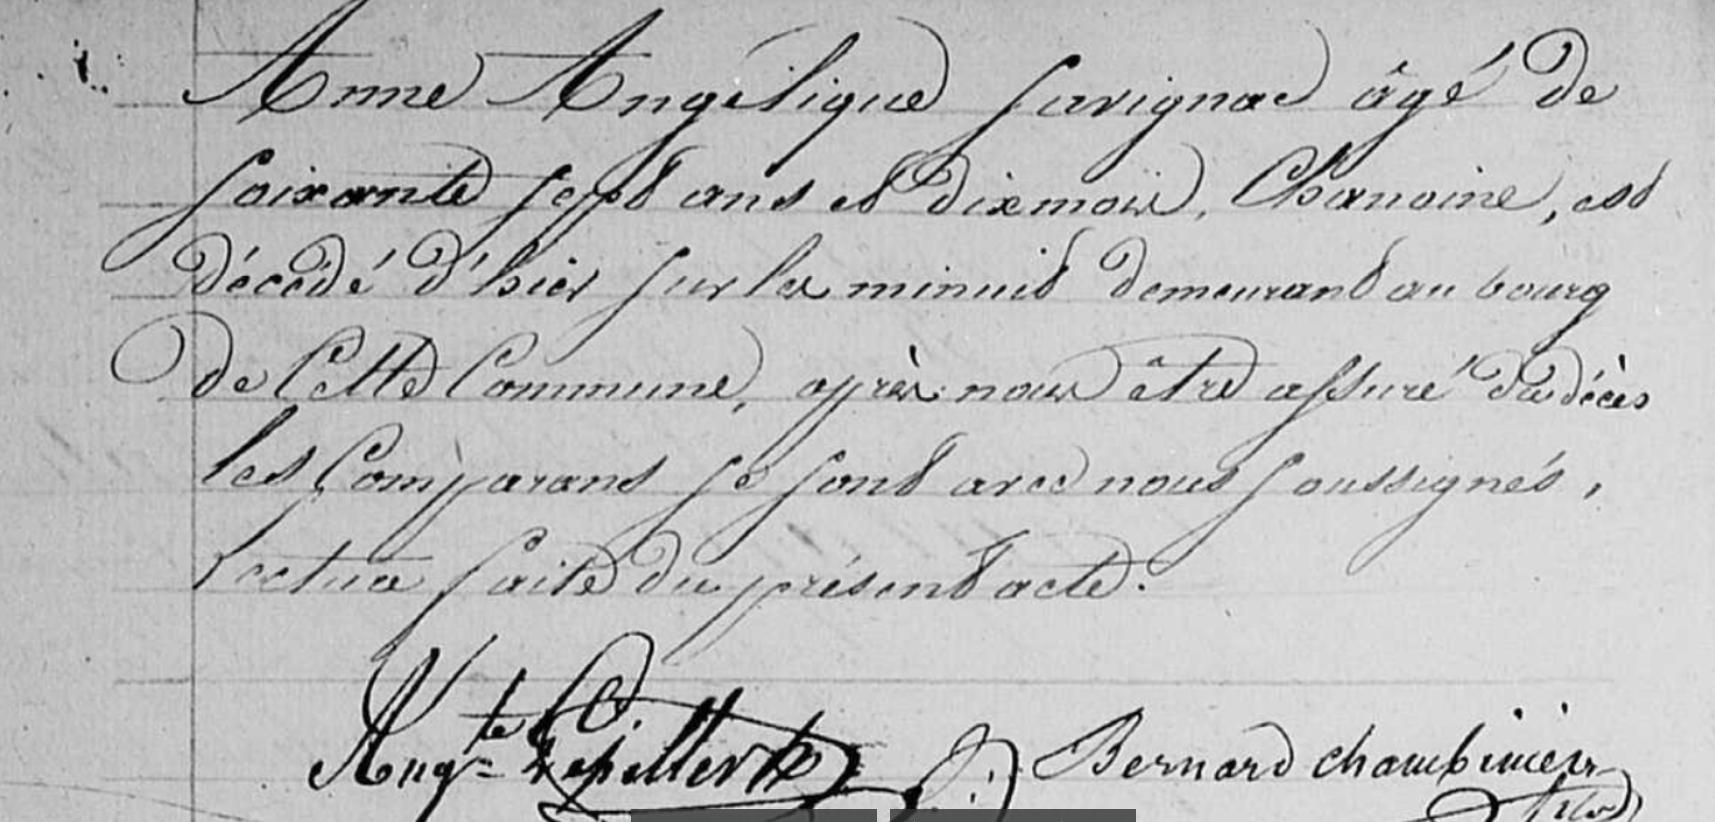 Anne Angélique Savignac âgé de
soixante sept ans et dix mois, Chanoine, est
décédé d'hier sur les minuit demeurant au bourg
de Cette Commune, après nous être assuré du décès
les Comparans se sont avec nous soussignés,
lecture faite du présent acte.
Aug.te Bernard chambinier